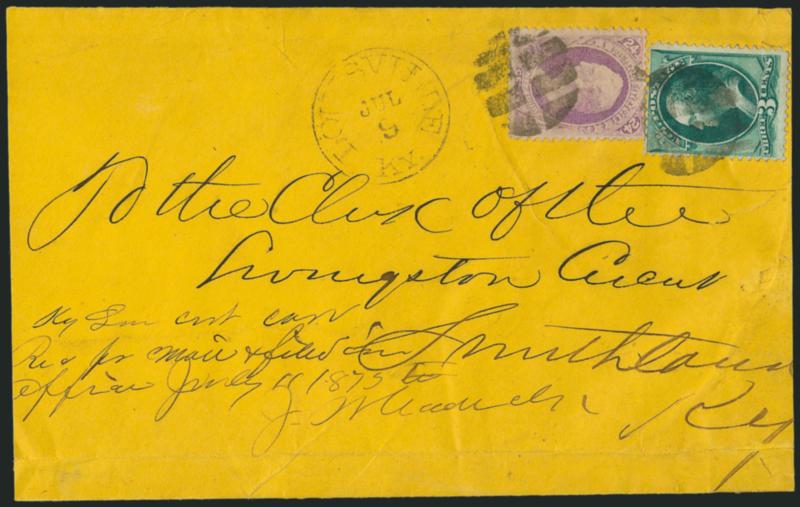 LOUISVILLE KY.
JUL
9
24
24
THREE 3 CENTS
To the Clerk of the
Livingston Circuit
Smithland
Ky
Ky
Rec pr mail & filed in
office July 11 1875
J W